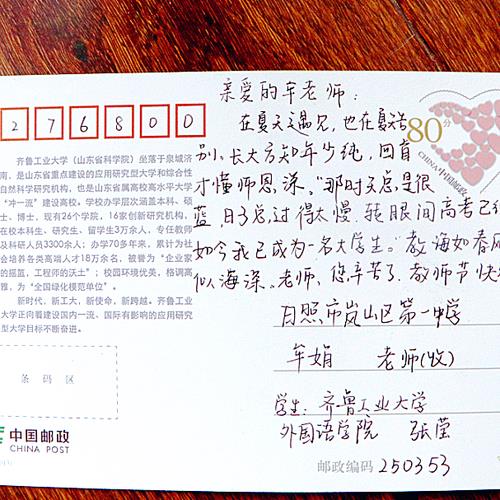 276800
亲爱的牟老师:
在夏天遇见,也在夏天告
别,长大方知年少纯,回首
才懂师恩深。"那时天总是很
蓝,日子总过得太慢,转眼间高考已
如今我已成为一名大学生。教诲如春风
似海深。老师,您辛苦了,教师节快
80分
CHINA 中国邮政
日照市岚山区第一中学
牟娟 老师(收)
学生:齐鲁工业大学
外国语学院 张莹
邮政编码 250353
齐鲁工业大学(山东省科学院)坐落于泉城济
南,是山东省重点建设的应用研究型大学和综合性
自然科学研究机构,也是山东省属高校高水平大学
"冲一流"建设高校。学校办学层次涵盖本科、硕
士、博士,现有26个学院,16家创新研究机构,
在校本科生、研究生、留学生3万余人,专任教师
及科研人员3300余人;办学70多年来,累计为社
会培养各类高端人才18万余名,被誉为"企业家
的摇篮,工程师的沃土";校园环境优美,格调高
雅,为"全国绿化模范单位"。
新时代,新工大,新使命,新跨越。齐鲁工业
大学正向着建设国内一流、国际有影响的应用研究
型大学目标不断奋进。
条码区
中国邮政
CHINA POST